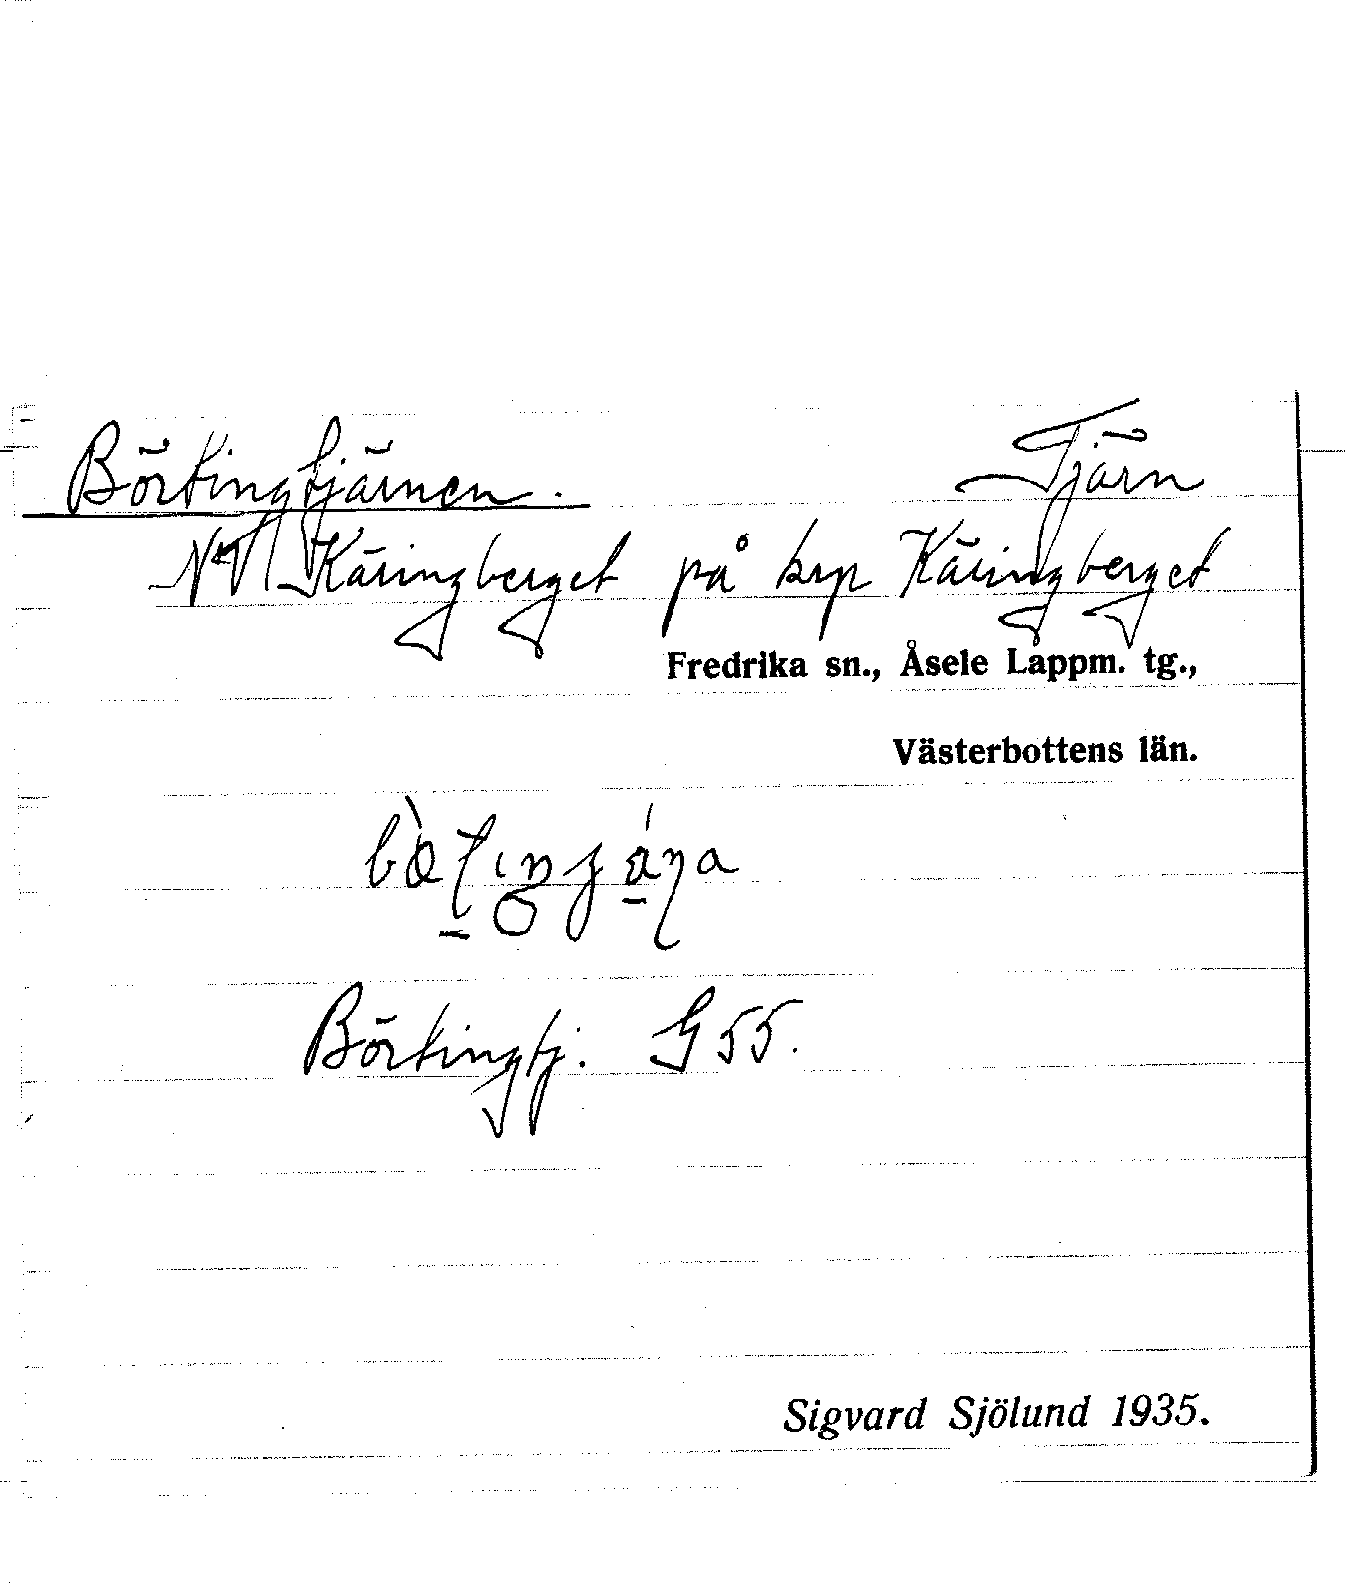 Börtingtjärnen. Tjärn
NV Käringberget på krp Käringberget
Fredrika sn., Åsele Lappm. tg.,
Västerbottens län.
Börtingtj. G 55.
Sigvard Sjölund 1935.